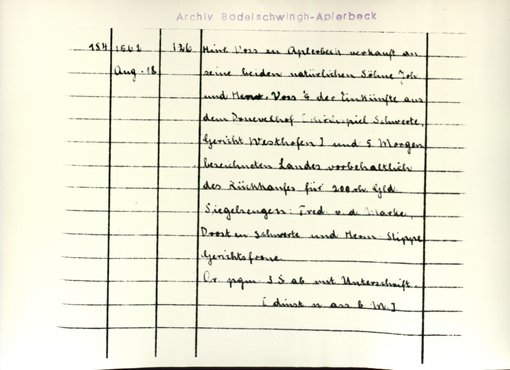 Archiv Bodelschwingh-Aplerbeck
184 1662 136 Hinr Voss zu Aplerbeck verkauft an
Aug. 18 seine beiden natürlichen Söhne Joh
und Henr. Voss ¼ der Einkünfte aus
dem Schwerte,
Gericht Westhofen] und 5 Morgen
bezeichneten Landes vorbehaltlich
des Rückkaufes für 200 rh Gld
Siegelzeugen: Fred v. d. Marke,
Drost zu Schwerte und Herm
Gerichtsfrone.
Or. pgm 3 S ab mit Unterschrift.